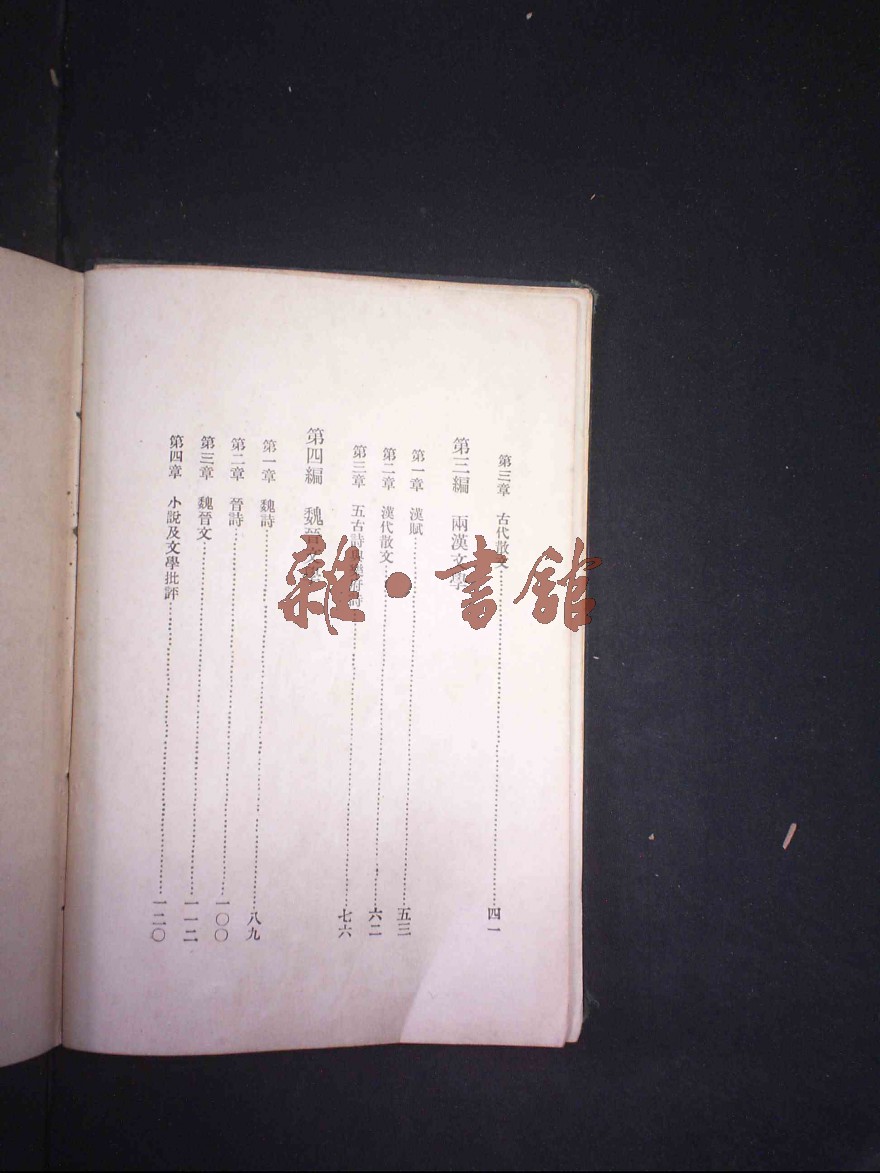 第三章 古代散文……四一
第三編 兩漢文學
第一章 漢賦……五三
第二章 漢代散文……六二
第三章 五古詩與樂府詩……七六
第四編 魏晉文學
第一章 魏詩……八九
第二章 晉詩……一〇〇
第三章 魏晉文……一一二
第四章 小說及文學批評……一二〇
雜·書館